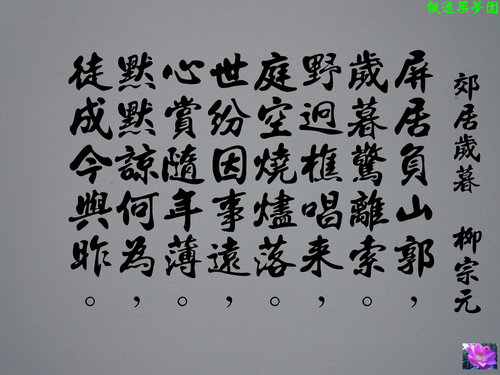 飄逸築夢園
郊居歲暮 柳宗元
屏居負山郭，
歲暮驚離索。
野迥樵唱来，
庭空燒燼落。
世紛因事遠，
心賞隨年薄。
默默諒何為，
徒成今與昨。